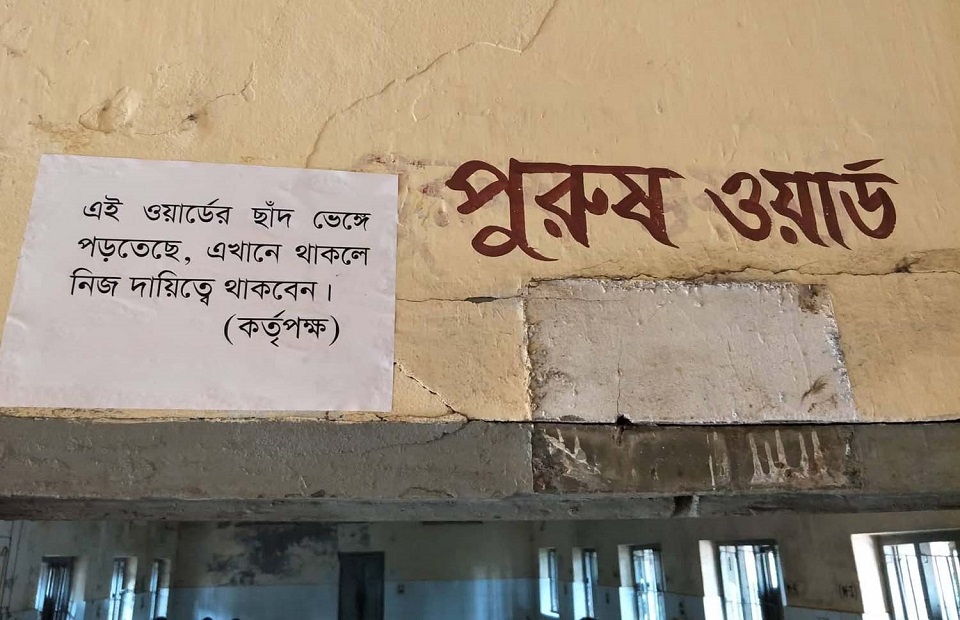 এই ওয়ার্ডের ছাঁদ ভেঙ্গে
পড়তেছে, এখানে থাকলে
নিজ দায়িত্বে থাকবেন।
(কর্তৃপক্ষ)
পুরুষ ওয়ার্ড